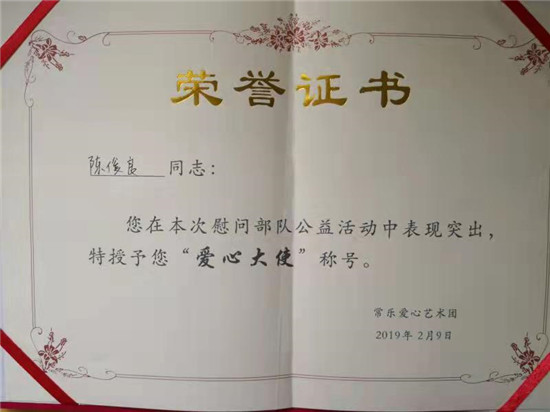 荣誉证书
陈俊良 同志：
您在本次慰问部队公益活动中表现突出，
特授予您“爱心大使”称号。
常乐爱心艺术团
2019年2月9日